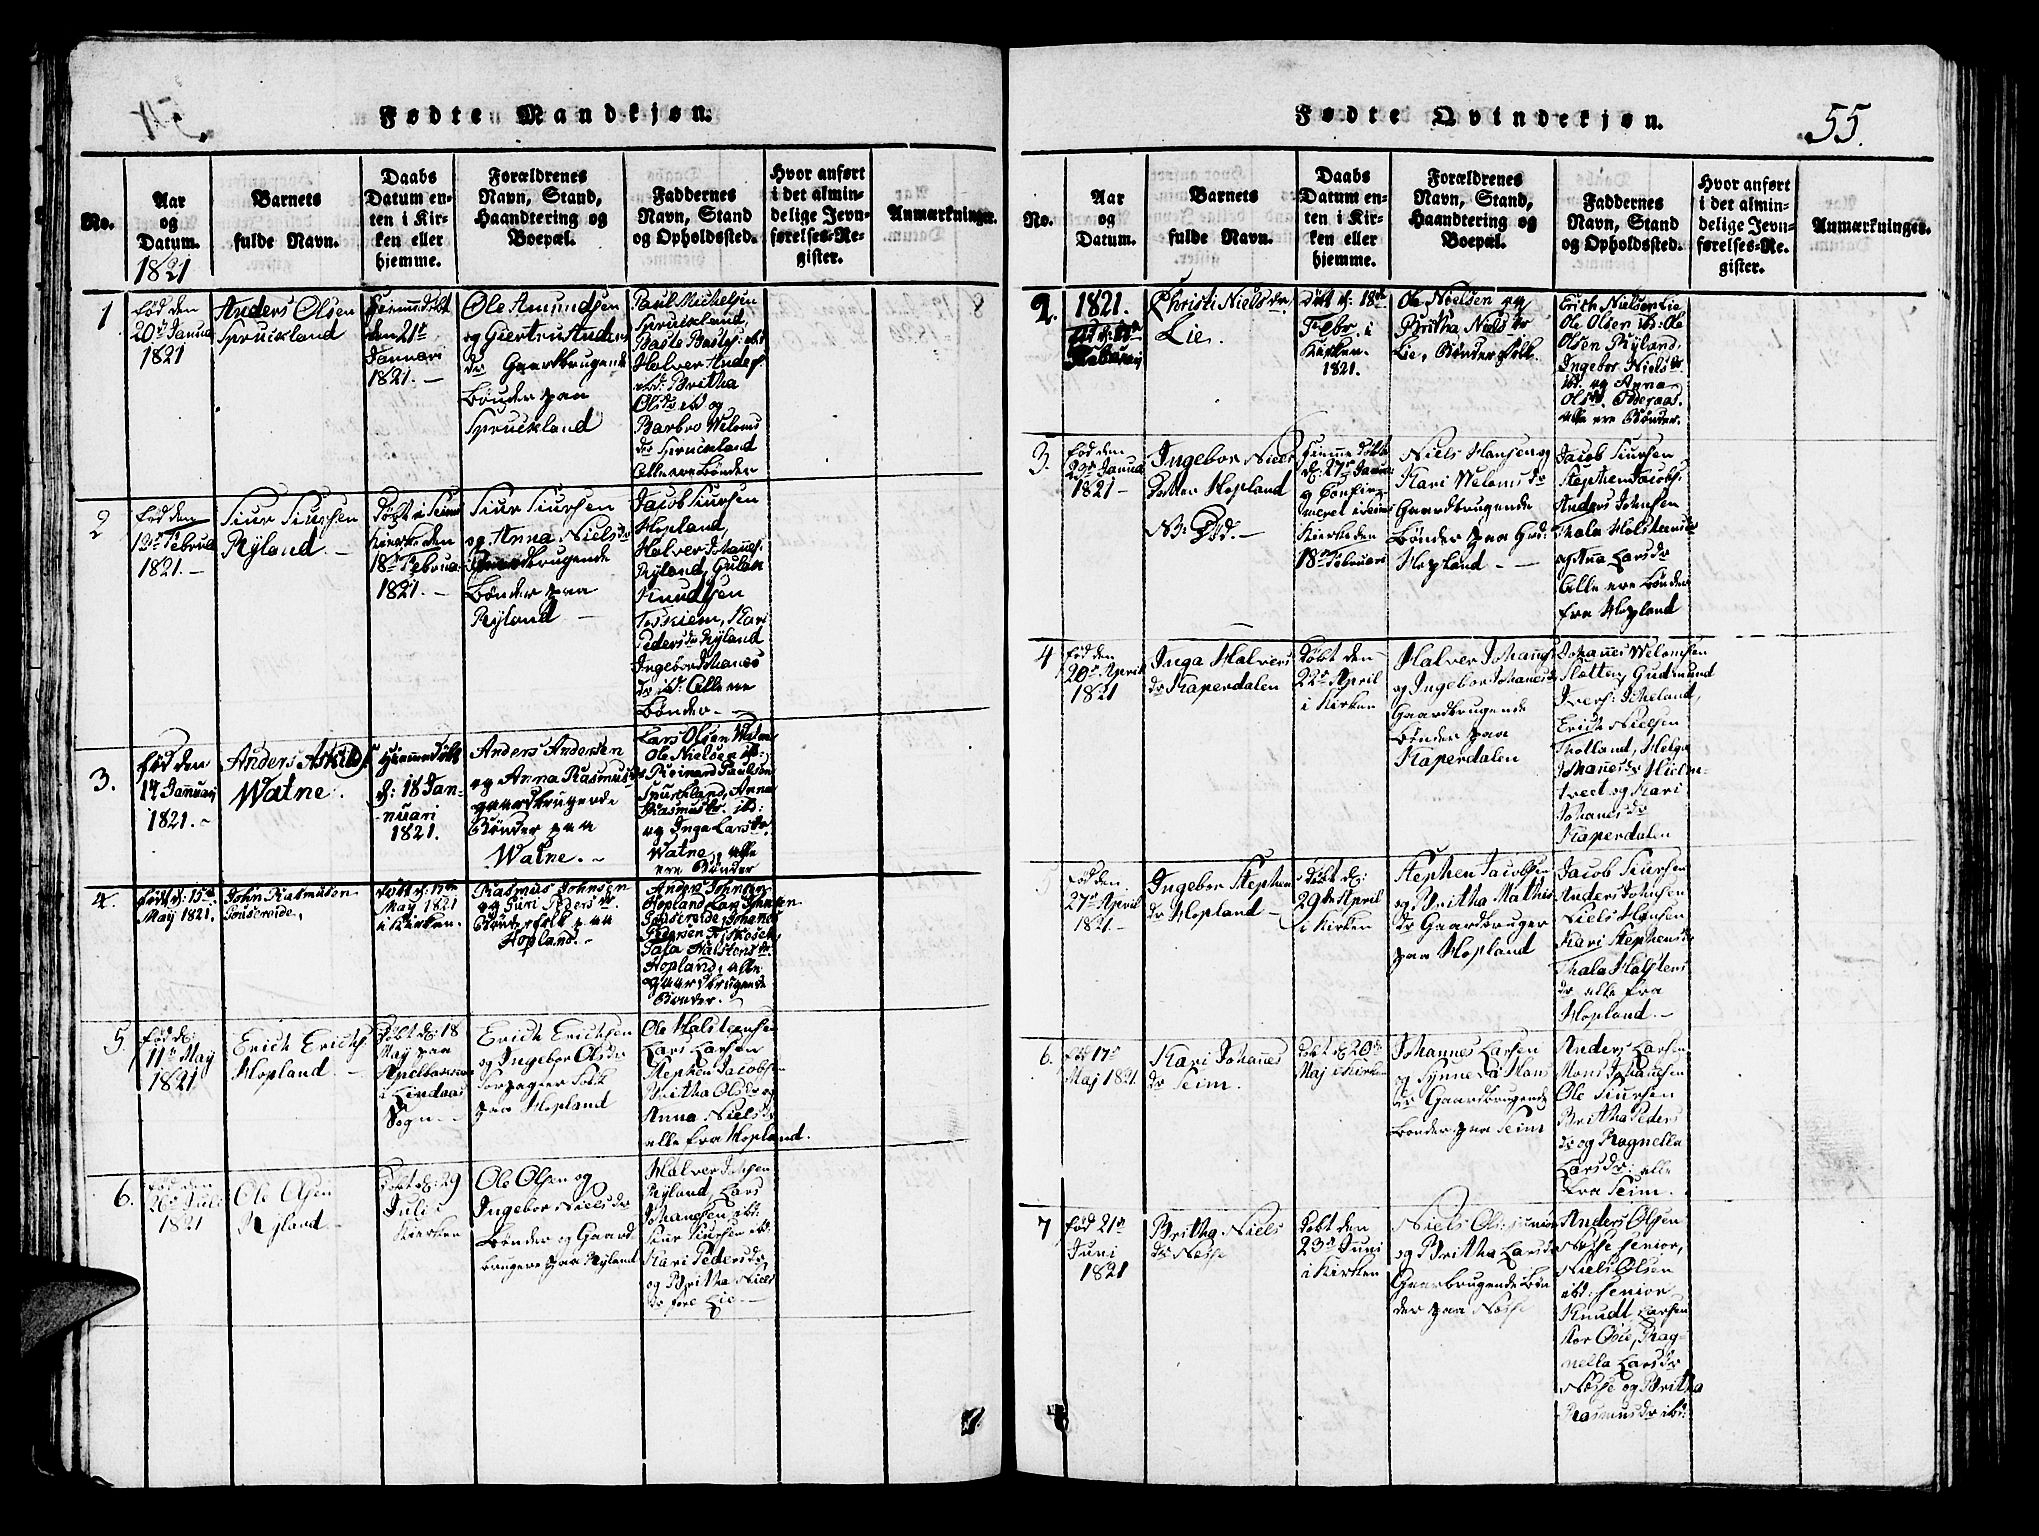 Fødte Mandkjøn.
No.
Aar
og
Datum.
1821
Barnets
fulde Navn.
Daabs
Datum en-
ten i Kir-
ken eller
hjemme.
Forældrenes
Navn, Stand,
Haandtering og
Boepæl.
Faddernes
Navn, Stand
og Opholdssted.
Hvor anført
i det almin-
delige Jevn-
førelses-Re-
gister.
Anmærkninger.
1
fød den
20de Janua
1821
Anders Olsen
Spruckland
Hiemmedøbt
den 21de
Januari
1821.
Ole Amundsen
og Giertru Anders
dr Gaardbrugende
Bønder paa
Spruckland
Paul Michelsen
Spruckland,
Halver Anders.
ibd: Britha
Olsdr ibd og
Barbro Weloms
dr Spruckland
alle ere Bønder
2
fød den
Februa
1821.
Siur Siursen
Ryland
Døbt i Seim
Kierke den
18de Februa
1821.
Siur Siursen
og Anna Nielsdr
Gaardbrugende
Bønder paa
Ryland
Jacob Siursen
Hopland,
Halver Johannes.
Ryland, Gulak
Knudsen
Kari
Pedersdr Ryland
Ingebor Johannes
dr ibd: alle ere
Bønder.
3.
fød den
17 Januari
1821.
Anders
Watne.
Hiemmedøbt
d: 18 Jan-
nuari
1821.
Anders Andersen
og Anna Rasmusdr
gaardbrugende
Bønder paa
Watne.
Lars Olsen Watne
Ole Nielsen ib:
Reinard Paulsen
Spurkland, Anna
Rasmusdr. ib:
og Inga Larsdr
Watne, alle
ere Bønder
4.
født d: 15de
May 1821.
John Rasmusen
Døbt d: 17de
May 1821
i Kirken.
Rasmus Johnsen
og Guri Pedersdr.
Bønderfolk paa
Hopland.
Anders Johnsen
Hopland, Lars Johnsen
Johannes
Pedersen
Tala Halstensdr.
Hopland, alle
gaardbrugende
Bønder.
5.
fød d:
11te May
1821
Erich Erichs.
Hopland
Døbt d: 18
May paa
i Lindaas
Sogn.
Erich Erichsen
og Ingebor Olsdr
Folk
paa Hopland
Ole Halsteensen
Lars Larsen
Stephen Jacobsen
Britha Olsdr og
Anna Nielsdr
alle fra Hopland.
6.
fød den
26de Juli
1821
Ole Olsen
Ryland
Døbt d: 29
Juli i
Kierken
Ole Olsen og
Ingebor Nielsdr
Bønder og Gaard
brugere paa Ryland
Halver Johsen
Ryland, Lars
Johannesen ibd:
Siur Siursen ibd
Kari Pedersdr
og Britha Niels
dr fore Lie
Fødte Qvindekjøn.
55.
No.
Aar
og
Datum.
Barnets
fulde Navn.
Daabs
Datum en-
ten i Kir-
ken eller
hjemme.
Forældrenes
Navn, Stand,
Haandtering og
Boepæl.
Faddernes
Navn, Stand
og Opholdssted.
Hvor anført
i det almin-
delige Jevn-
førelses-Re-
gister.
Anmærkninger.
2.
1821.
Christi Nielsdr.
Lie.
Døbt d: 18de
Febr. i
Kirken.
1821.
Ole Nielsen og
Britha Nielsdr
Lie, Bønderfolk.
Erich Nielsen Lie
Ole Olsen ibd: Ole
Olsen Ryland,
Ingebor Nielsdr.
ib. og Anna
Olsdr.
alle ere Bønder.
3.
fød den
Janua
1821
Ingebor Niels
Datter Hopland
NB: Død.
Hiemmedøbt
d: 27de Janua
og Confir-
meret i Seims
Kierke den
18de Februari
Niels Hansen og
Kari Welomsdr
Gaardbrugende
Bønder paa
Hopland
Jacob Siursen
Stephen Jacobs.
Anders Johnsen
Thala Holsteensdr
og Anna Larsdr
alle ere Bønder
fra Hopland
4
fød den
20de April
1821
Inga Halvers
dr Kaperdalen
Døbt den
22de April
i Kirken
Halver Johannes.
og Ingebor Johannesdr
Gaardbrugende
Bønder paa
Kaperdalen
Johannes Welomsen
Gudmund
Ivers.
Erich Nielsen
Helga
Johannesdr Hielm-
tvedt og Kari
Johanesdr
Kaperdalen
5
Fød den
27de April
1821.
Ingebor Stephens
dr Hopland
Døbt d:
29de April
i Kirken
Stephen Jacobsen
og Britha Mathis
dr Gaardbruger
paa Hopland
Jacob Siursen
Anders Johnsen
Niels Hansen
Kari Stephensdr
Thala Halstens
dr alle fra
Hopland.
6.
Fød 17de
Maj 1821
Kari Johannes
dr Seim.
Døbt d 20de
Maj i Kirken
Johannes Larsen
og Synneva Hans
dr Gaardbrugende
Bønder paa Seim
Anders Larsen
Mons Johannesen
Ole Siursen
Britha Peders
dr og Ragnella
Larsdr: alle
fra Seim.
7
fød 21de
Juni
1821
Britha Niels
dr Nesse
Døbt den
23de Juni
i Kirken
Niels Ols: junior
og Britha Larsdr
Gaarbrugende Bøn
der paa Nesse
Anders Olsen
Nesse senior,
Niels Olsen
ibd: senior
Knudt Larsen
Rag-
nella Larsdr
Nesse og Britha
Rasmusdr ibd: